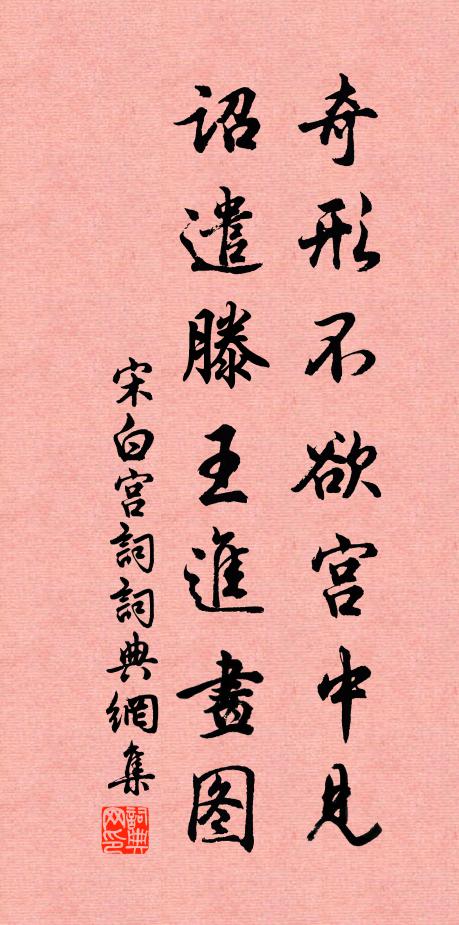 奇形不欲宫中見
詔遣滕王進畫图
宋白宫詞詞典網集
詞典网印